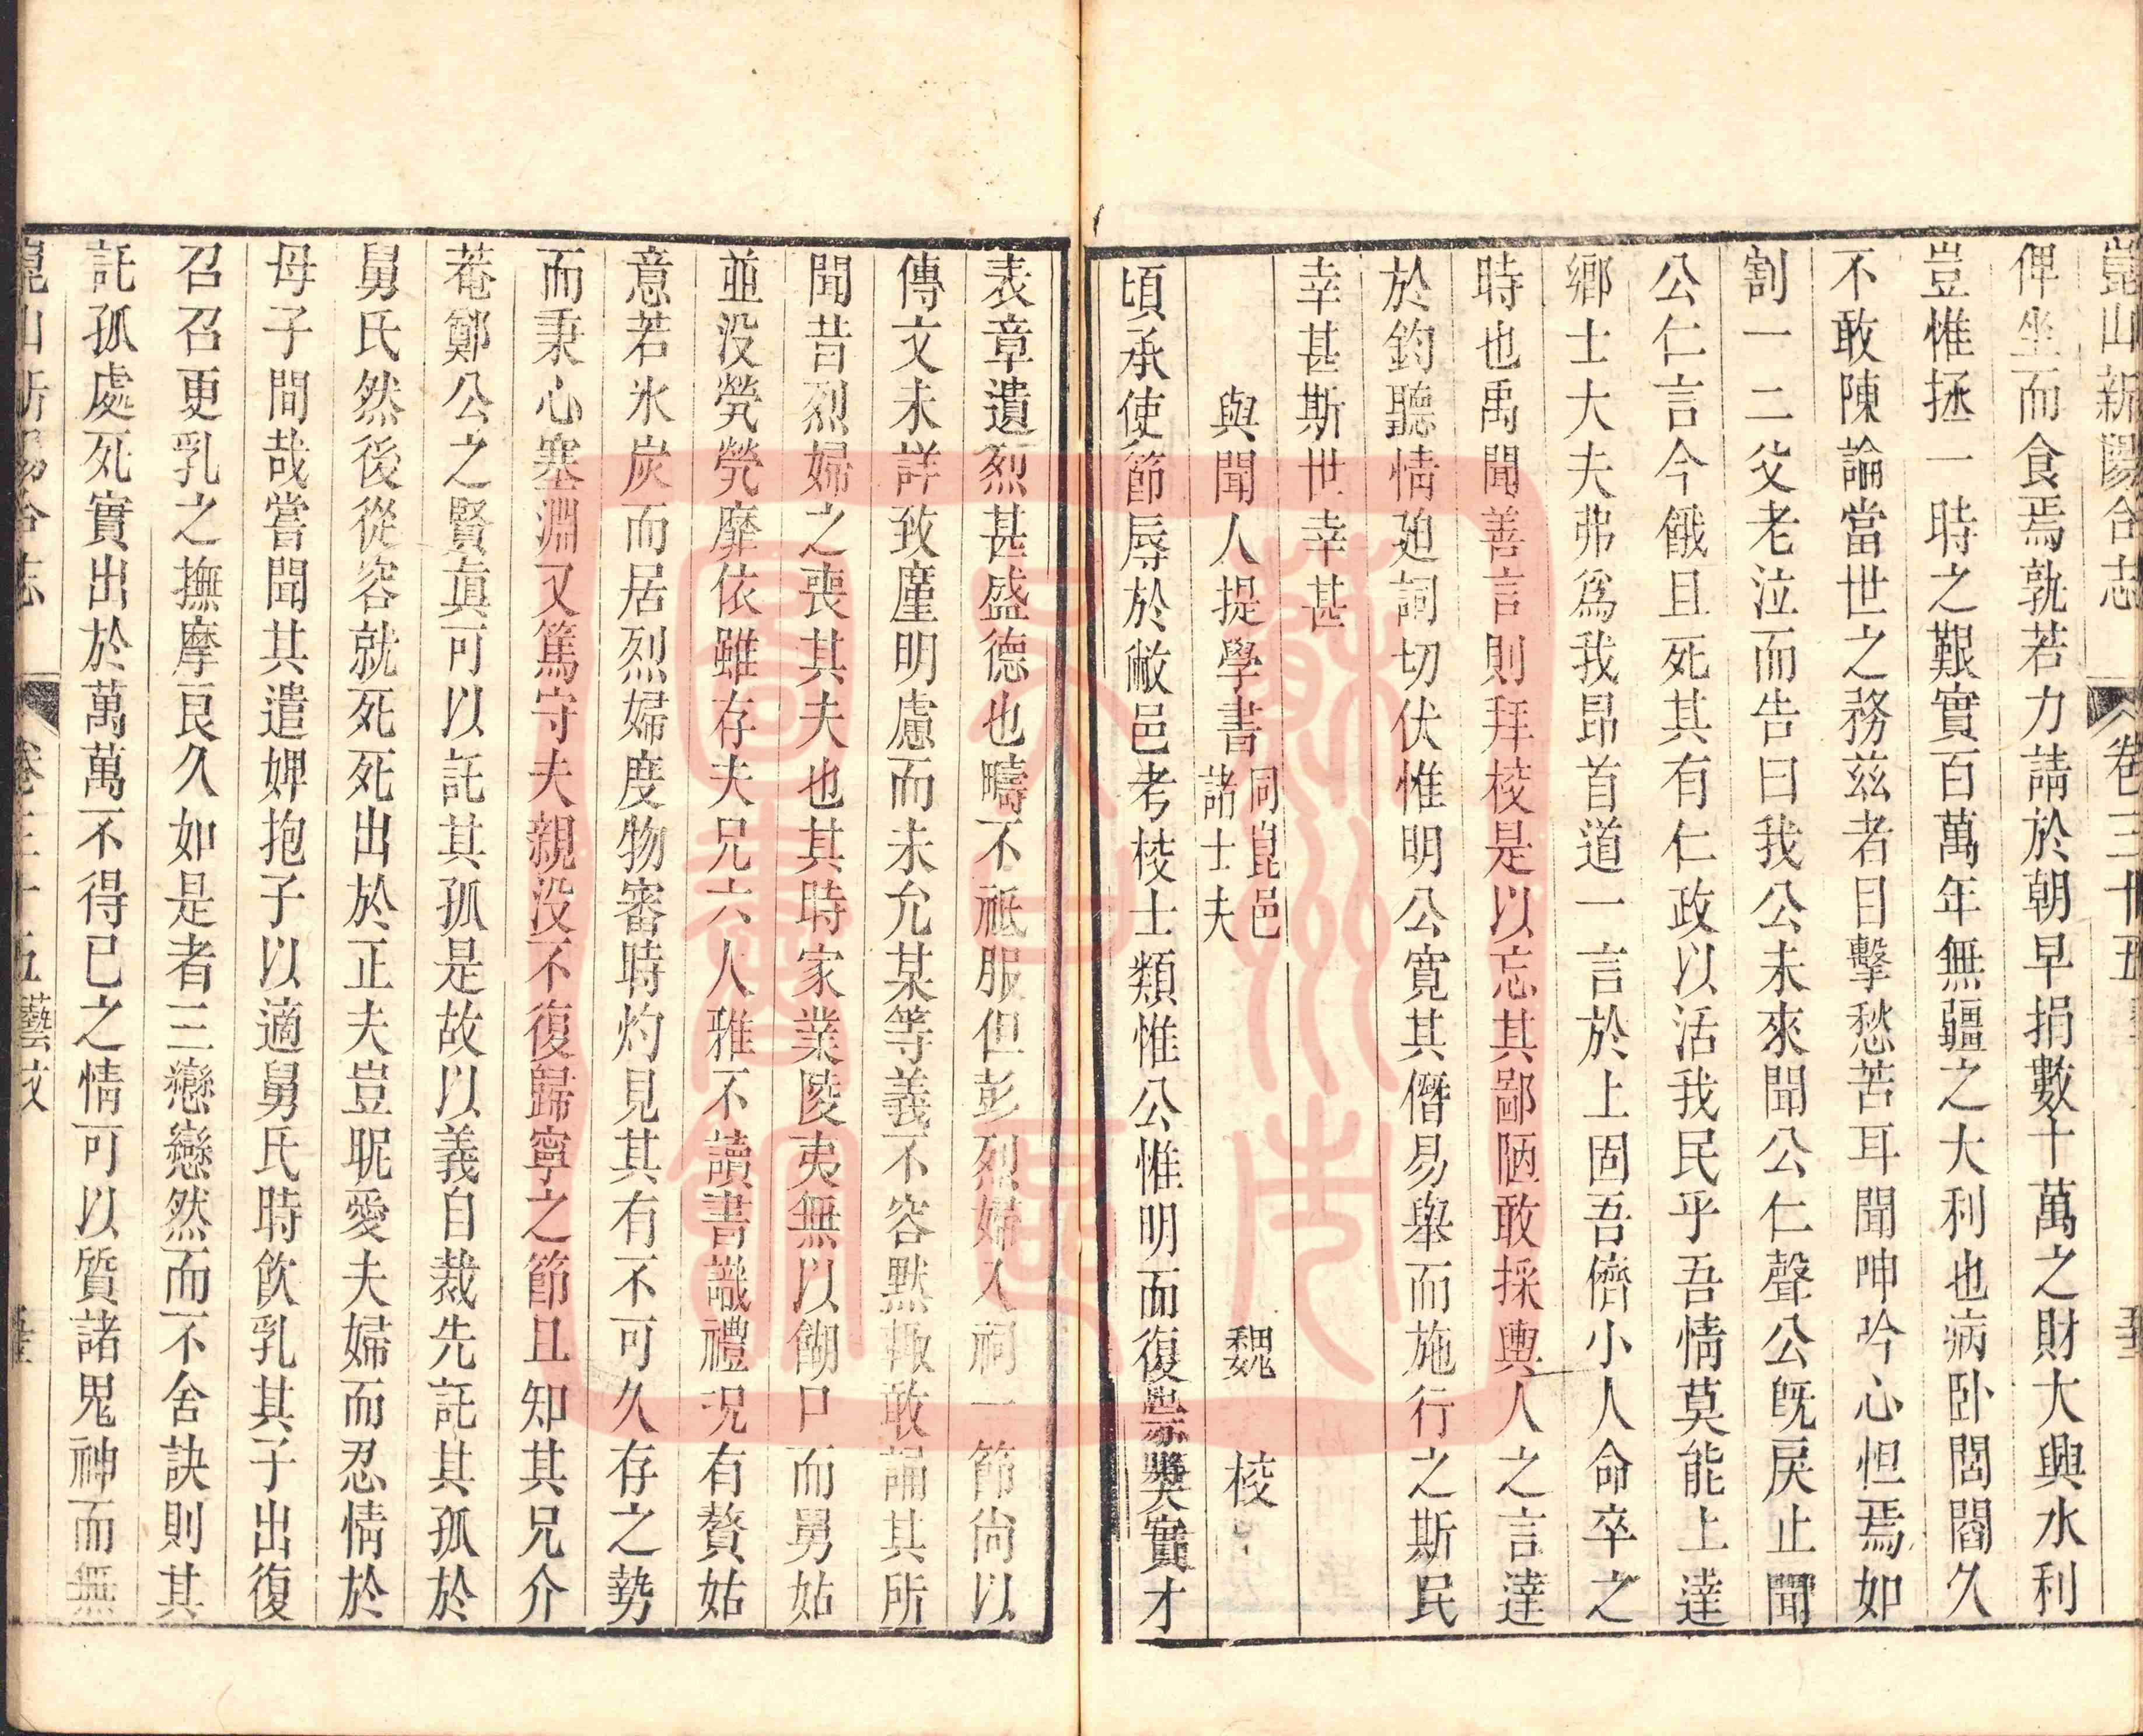 崑山新陽合志　卷三十五
俾坐而食焉孰若力請於朝早捐數十萬之財大興水利
豈惟拯一時之艱實百萬年無疆之大利也病卧閭閻久
不敢陳論當世之務兹者目擊愁苦耳聞呻吟心怛焉如
割一二父老泣而告曰我公未來聞公仁聲公旣戾止聞
公仁言今餓且死其有仁政以活我民乎吾情莫能上達
鄉士大夫弗爲我昂首道一言於上固吾儕小人命卒之
時也禹聞善言則拜校是以忘其鄙陋敢採輿人之言達
於鈞聽情廹詞切伏惟明公寛其僭易舉而施行之斯民
幸甚斯世幸甚
與聞人提學書同崑邑諸士夫　魏　校
頃承使節辱於敝邑考校士類惟公惟明而復崇奬實才
表章遺烈甚盛德也疇不祗服但彭烈婦入祠一節尚以
傳文未詳致廑明慮而未允某等義不容默輙敢誦其所
聞昔烈婦之喪其夫也其時家業陵夷無以餬口而舅姑
並没煢煢靡依雖存夫兄六人雅不讀書識禮况有贅姑
意若氷炭而居烈婦度物審時灼見其有不可久存之勢
而秉心塞淵又篤守夫親没不復歸寧之節且知其兄介
菴鄭公之賢眞可以託其孤是故以義自裁先託其孤於
舅氏然後從容就死死出於正夫豈昵愛夫婦而忍情於
母子間哉嘗聞其遣婢抱子以適舅氏時飲乳其子出復
召召更乳之撫摩良久如是者三戀戀然而不舍訣則其
託孤處死實出於萬萬不得已之情可以質諸鬼神而無
崑山新陽合志　卷三十五藝文
蘇州市人民圖書館